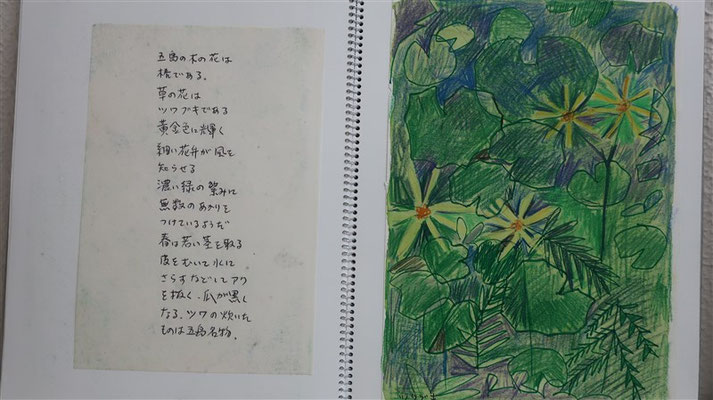 五島の木の花は
椿である。
草の花は
ツワブキである
黄金色に輝く
細い花弁が風を
知らせる
濃い緑の繁みに
無数のあかりを
つけているようだ
春は若い茎を取る
皮をむいて水に
さらすなどしてアク
を抜く、爪が黒く
なる。ツワの炊いた
ものは五島名物。